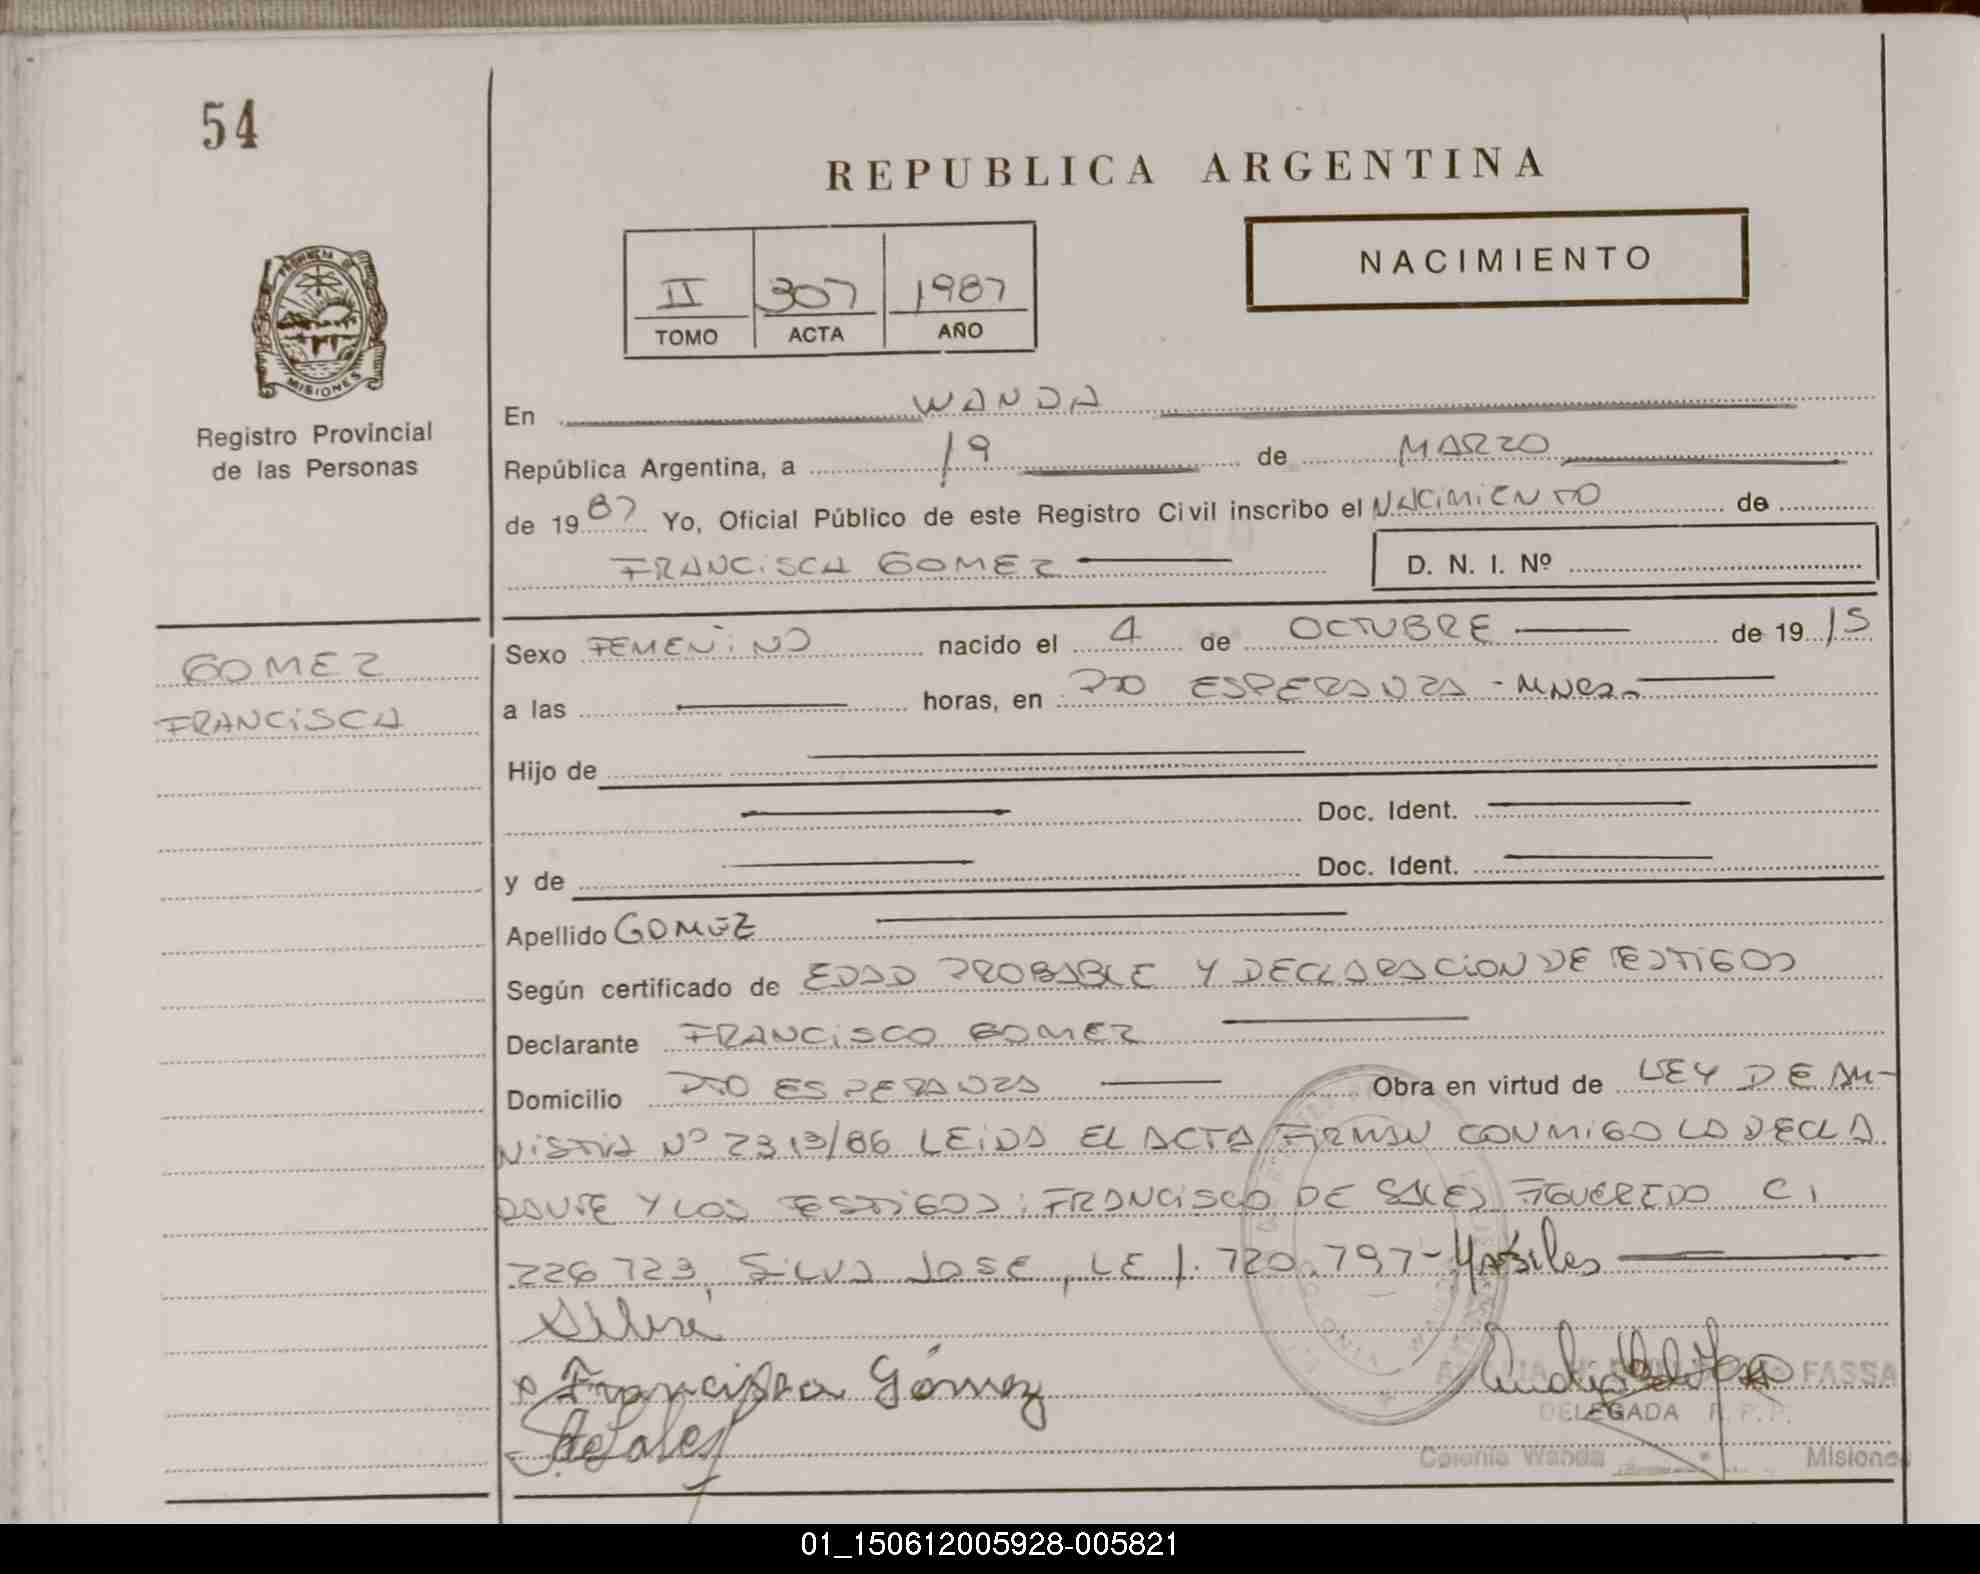 54
REPUBLICA ARGENTINA
NACIMIENTO
II 307 1987
TOMO ACTA AÑO
PROVINCIA DE
MISIONES
Registro Provincial
de las Personas
En WANDA
República Argentina, a 19 de MARZO
de 19 87 Yo, Oficial Público de este Registro Civil inscribo el NACIMIENTO de
FRANCISCA GOMEZ D. N. I. Nº
GOMEZ
FRANCISCA
Sexo FEMENINO nacido el 4 de OCTUBRE de 19 15
a las horas, en PTO ESPERANZA - MNES.
Hijo de
Doc. Ident.
y de Doc. Ident.
Apellido GOMEZ
Según certificado de EDAD PROBABLE Y DECLARACION DE TESTIGOS
Declarante FRANCISCO GOMEZ
Domicilio PTO ESPERANZA Obra en virtud de LEY DE AM-
NISTIA Nº 2313/86 LEIDA EL ACTA FIRMAN CONMIGO LA DECLA
RANTE Y LOS TESTIGOS: FRANCISCO DE SALES FIGUEREDO CI
226 723, SILVA JOSE, LE 1.720.797-
Francisca Gómez
de Sales
FASSA
DELEGADA R. P. P.
Colonia Wanda Misiones
01_150612005928-005821